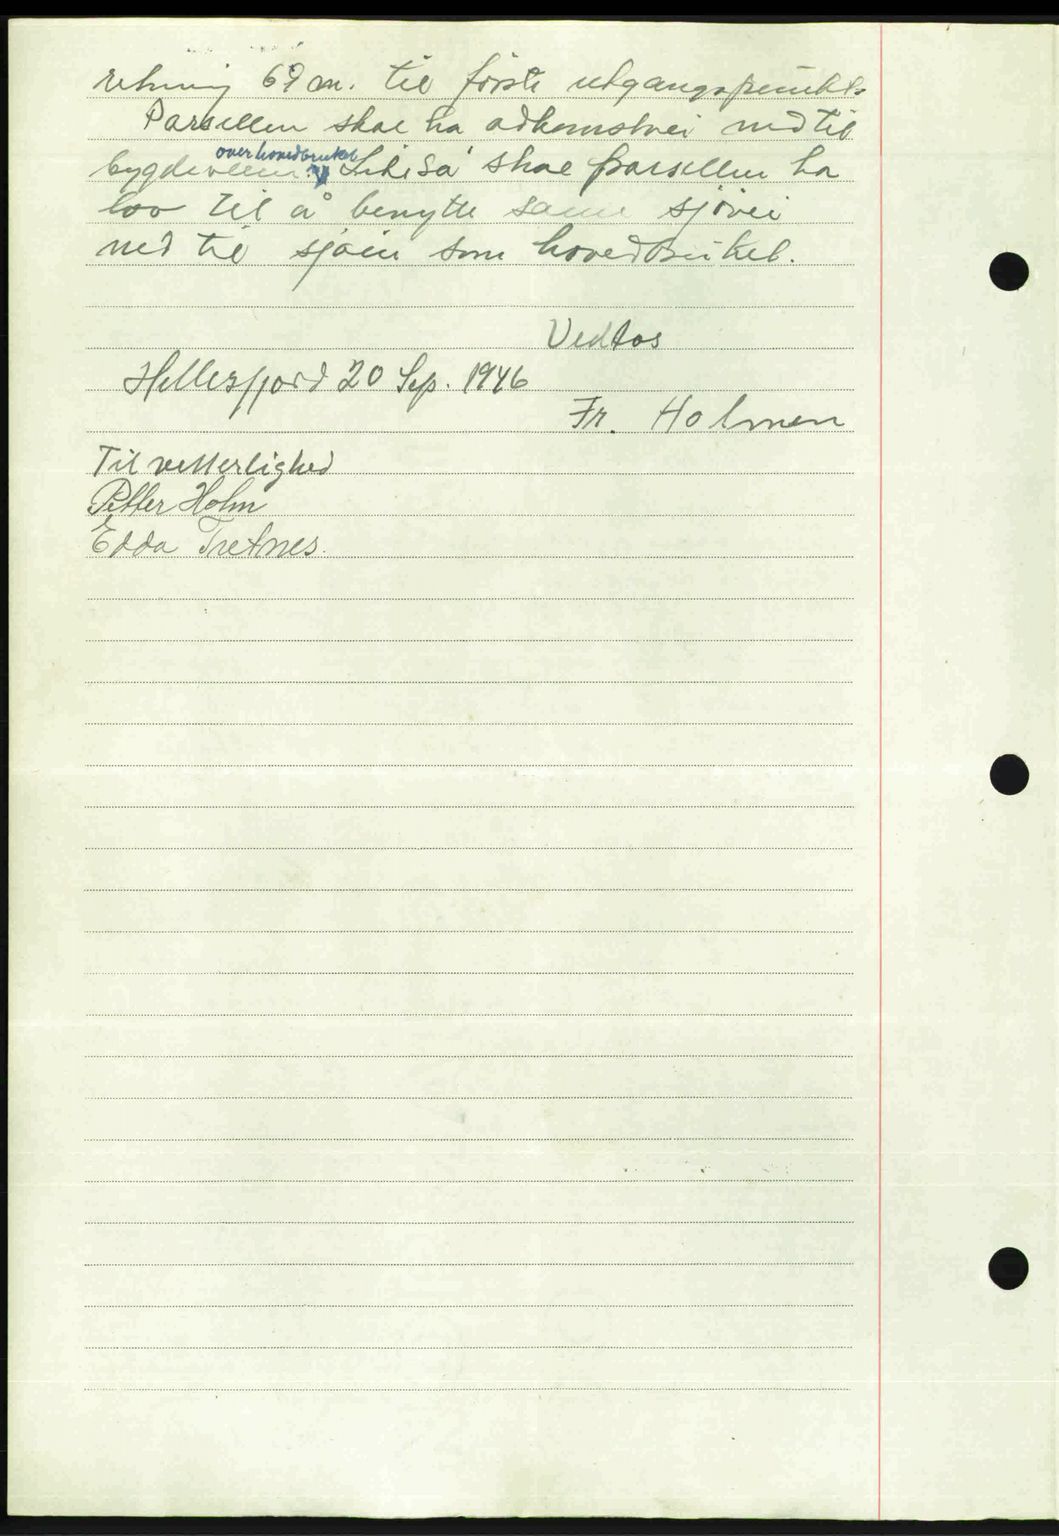 retning 69 m. til første utgangspunkt.
Parsellen skal ha adkomstvei ned til
over hovedbruket
bygdeveien. Likeså skal parsellen ha
lov til å benytte same sjøvei
ned til sjøen som hovedbruket.
Vedtas
Hellesfjord 20 Sep. 1946
Fr. Holmen
Til vitterlighed
Petter Holm
Edda Tretnes.